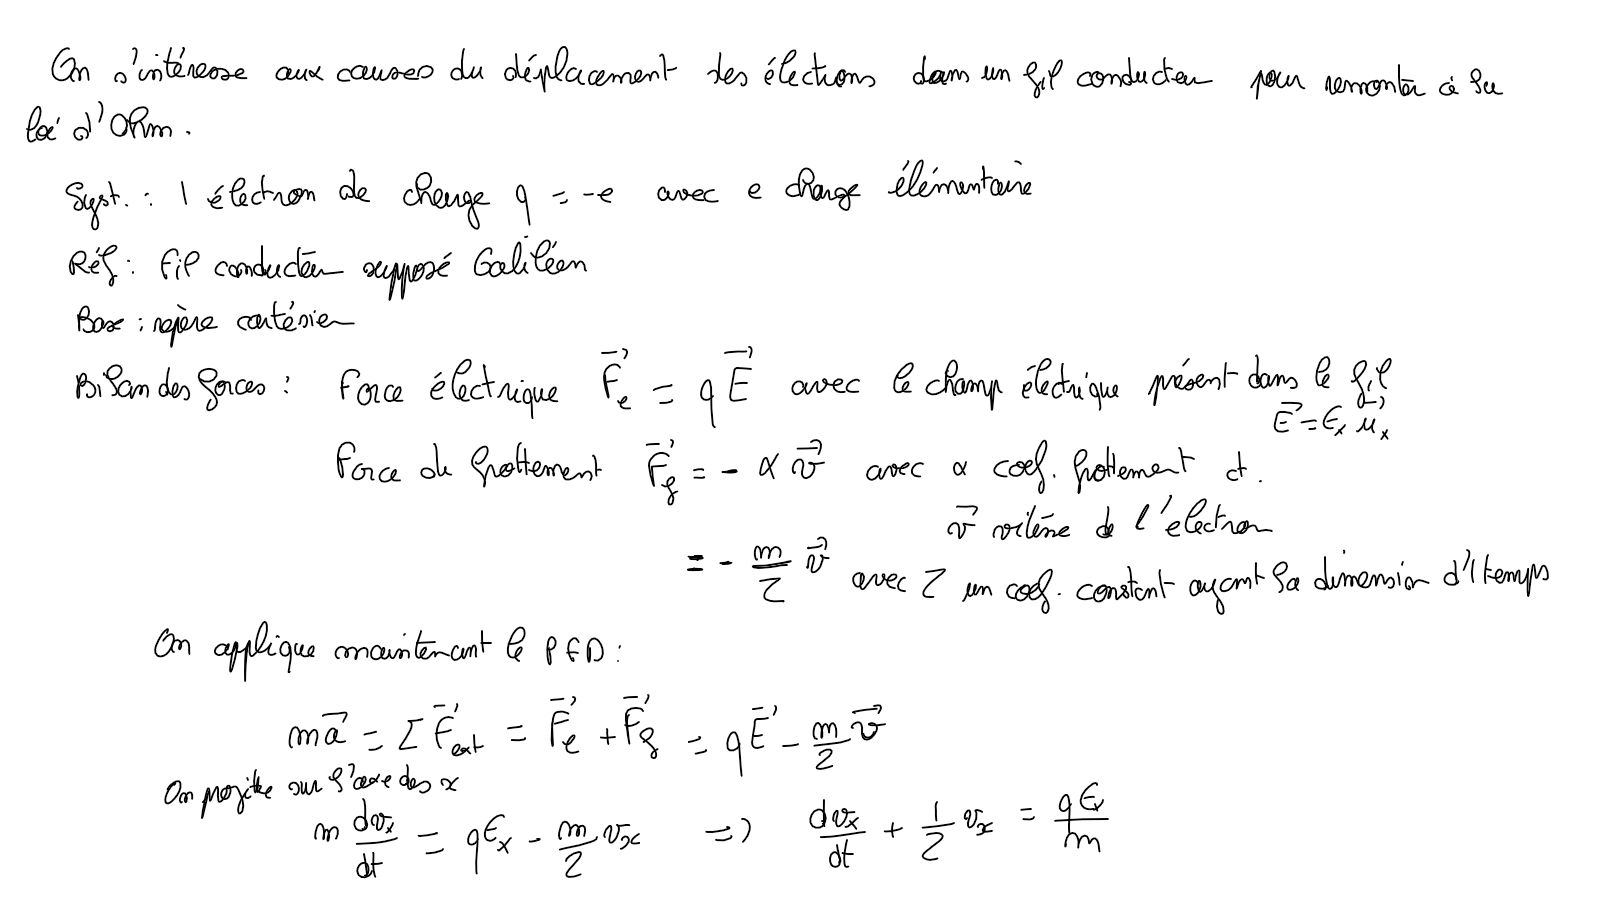 On s'intéresse aux causes du déplacement des électrons dans un fil conducteur pour remonter à la
loi d'Ohm.
Syst. : 1 électron de charge q = -e avec e charge élémentaire
Réf : fil conducteur supposé Galiléen
Base : repère cartésien
Bilan des forces : Force électrique F⃗e = qE⃗ avec le champ électrique présent dans le fil
E⃗ = Ex u⃗x
Force de frottement F⃗f = - α v⃗ avec α coef. frottement et.
v⃗ vitesse de l'electron
= - m/τ v⃗ avec τ un coef. constant ayant la dimension d'1 temps
On applique maintenant le PFD :
ma⃗ = Σ F⃗ext = F⃗e + F⃗f = qE⃗ - m/τ v⃗
On projette sur l'axe des x
m dvx/dt = qEx - m/τ vx => dvx/dt + 1/τ vx = qEx/m